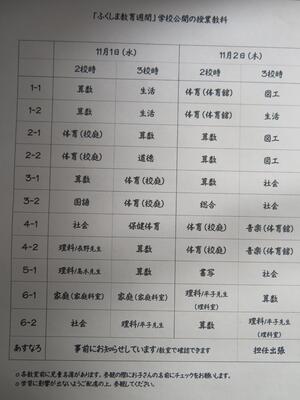 「ふくしま教育週間」学校公開の授業教科
11月1日(水) 11月2日(木)
2校時 3校時 2校時 3校時
1-1 算数 生活 体育(体育館) 図工
1-2 算数 生活 体育(体育館) 生活
2-1 体育(校庭) 算数 算数 図工
2-2 体育(校庭) 道徳 算数 図工
3-1 算数 体育(校庭) 算数 社会
3-2 国語 体育(校庭) 総合 社会
4-1 社会 保健体育 体育(校庭) 音楽(体育館)
4-2 理科/辰野先生 算数 体育(校庭) 音楽(体育館)
5-1 理科/高木先生 算数 書写 社会
6-1 家庭(家庭科室) 家庭(家庭科室) 理科/平子先生(理科室) 算数
6-2 社会 理科/平子先生 算数 理科/平子先生(理科室)
あすなろ 事前にお知らせしています/教室で確認できます 担任出張
○各教室前に児童名簿があります。参観の際にお子さんの名前にチェックをお願いします。
○学習に影響が出ないようご配慮の上、参観してください。